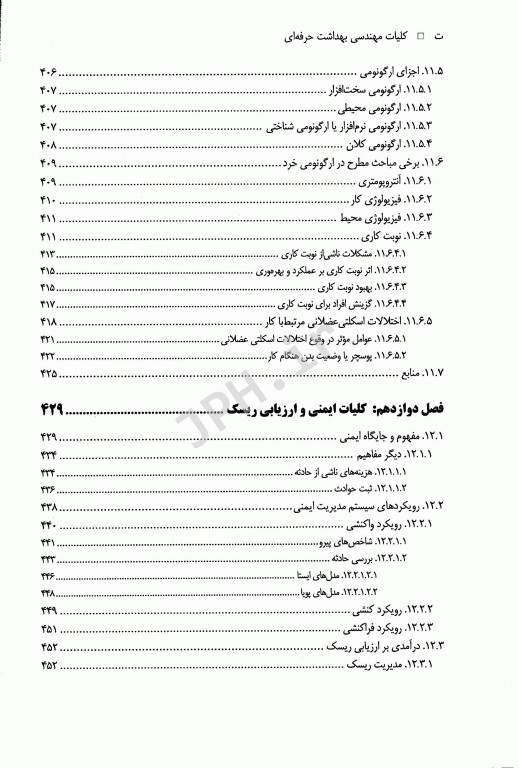 ت □ کلیات مهندسی بهداشت حرفه‌ای
۱۱.۵. اجزای ارگونومی ........ ۴۰۶
۱۱.۵.۱. ارگونومی سخت‌افزار ........ ۴۰۷
۱۱.۵.۲. ارگونومی محیطی ........ ۴۰۷
۱۱.۵.۳. ارگونومی نرم‌افزار یا ارگونومی شناختی ........ ۴۰۷
۱۱.۵.۴. ارگونومی کلان ........ ۴۰۸
۱۱.۶. برخی مباحث مطرح در ارگونومی خرد ........ ۴۰۹
۱۱.۶.۱. آنتروپومتری ........ ۴۰۹
۱۱.۶.۲. فیزیولوژی کار ........ ۴۱۰
۱۱.۶.۳. فیزیولوژی محیط ........ ۴۱۱
۱۱.۶.۴. نوبت کاری ........ ۴۱۱
۱۱.۶.۴.۱. مشکلات ناشی‌از نوبت کاری ........ ۴۱۳
۱۱.۶.۴.۲. اثر نوبت کاری بر عملکرد و بهره‌وری ........ ۴۱۵
۱۱.۶.۴.۳. بهبود نوبت کاری ........ ۴۱۵
۱۱.۶.۴.۴. گزینش افراد برای نوبت کاری ........ ۴۱۷
۱۱.۶.۵. اختلالات اسکلتی‌عضلانی مرتبط‌با کار ........ ۴۱۸
۱۱.۶.۵.۱. عوامل مؤثر در وقوع اختلالات اسکلتی عضلانی ........ ۴۲۱
۱۱.۶.۵.۲. پوسچر یا وضعیت بدن هنگام کار ........ ۴۲۲
۱۱.۷. منابع ........ ۴۲۵
فصل دوازدهم: کلیات ایمنی و ارزیابی ریسک ........ ۴۲۹
۱۲.۱. مفهوم و جایگاه ایمنی ........ ۴۲۹
۱۲.۱.۱. دیگر مفاهیم ........ ۴۳۴
۱۲.۱.۱.۱. هزینه‌های ناشی از حادثه ........ ۴۳۴
۱۲.۱.۱.۲. ثبت حوادث ........ ۴۳۶
۱۲.۲. رویکردهای سیستم مدیریت ایمنی ........ ۴۳۸
۱۲.۲.۱. رویکرد واکنشی ........ ۴۴۰
۱۲.۲.۱.۱. شاخص‌های پیرو ........ ۴۴۱
۱۲.۲.۱.۲. بررسی حادثه ........ ۴۴۳
۱۲.۲.۱.۲.۱. مدل‌های ایستا ........ ۴۴۶
۱۲.۲.۱.۲.۲. مدل‌های پویا ........ ۴۴۸
۱۲.۲.۲. رویکرد کنشی ........ ۴۴۹
۱۲.۲.۳. رویکرد فراکنشی ........ ۴۵۱
۱۲.۳. درآمدی بر ارزیابی ریسک ........ ۴۵۲
۱۲.۳.۱. مدیریت ریسک ........ ۴۵۲
JPH.ir